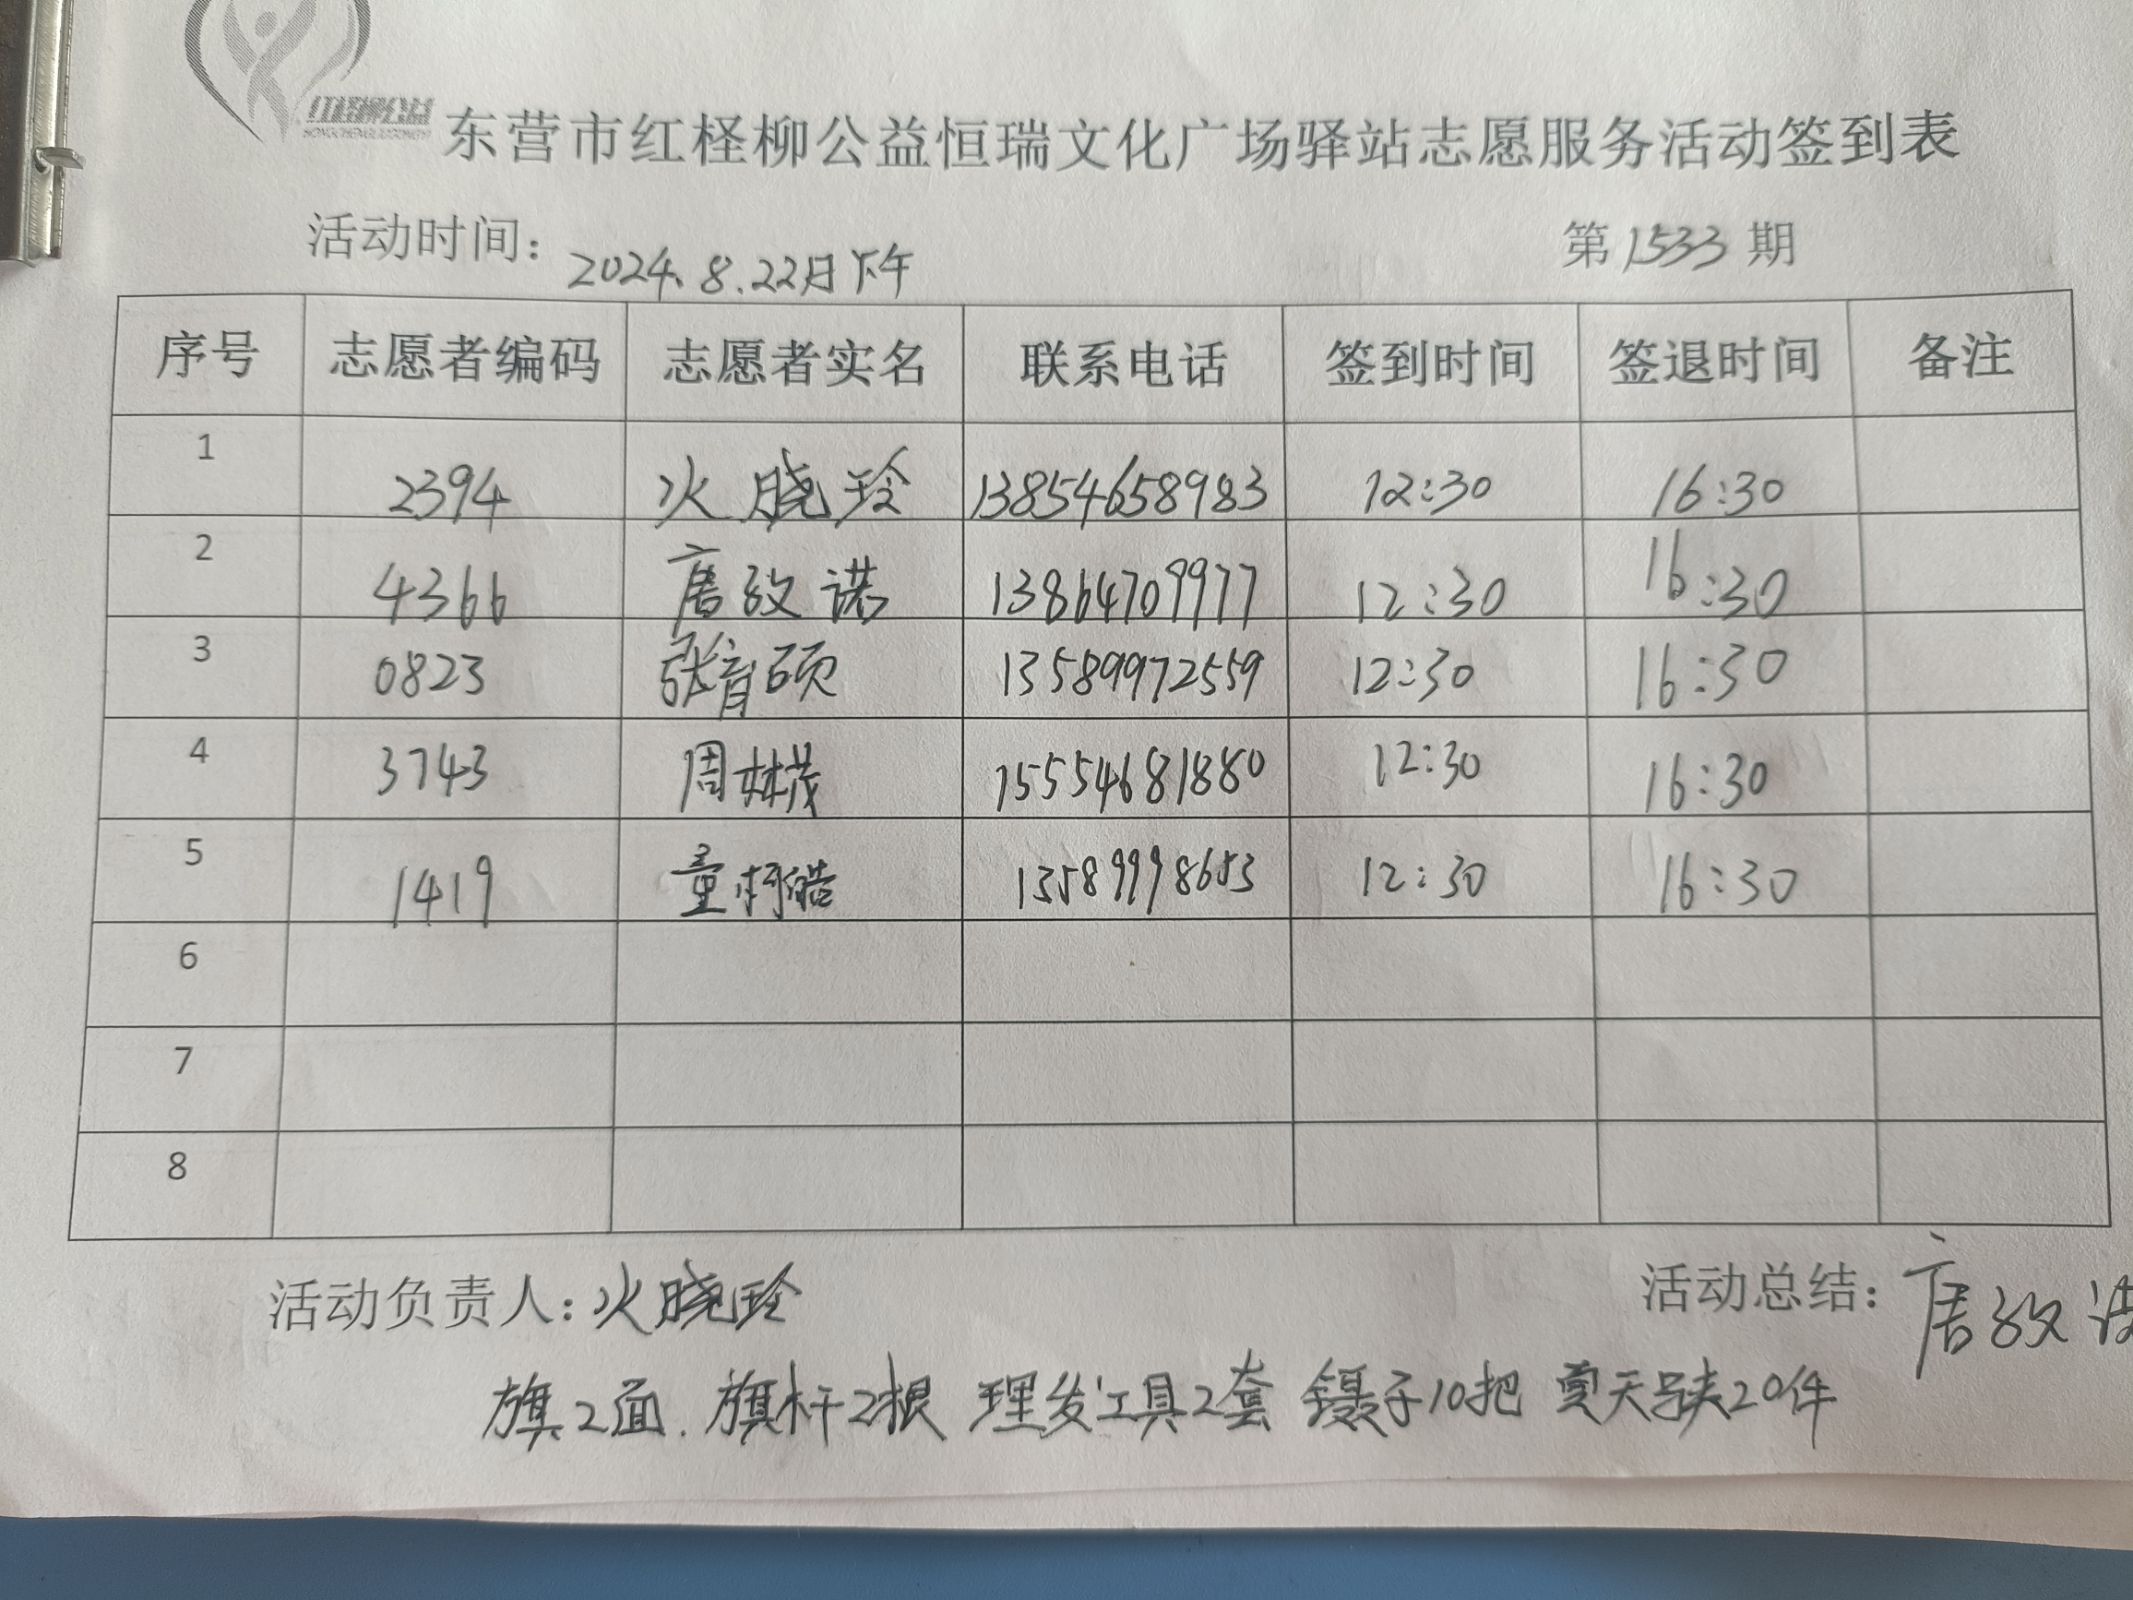 红柽柳公益
东营市红柽柳公益恒瑞文化广场驿站志愿服务活动签到表
活动时间: 2024.8.22日下午 第1533期
序号 志愿者编码 志愿者实名 联系电话 签到时间 签退时间 备注
1 2394 火晓玲 13854658983 12:30 16:30
2 4366 唐玫诺 13864709977 12:30 16:30
3 0823 张育硕 13589972559 12:30 16:30
4 3743 周林茂 15554681880 12:30 16:30
5 1419 童柯皓 13589998653 12:30 16:30
6
7
8
活动负责人: 火晓玲 活动总结: 唐玫
旗2面. 旗杆2根 理发工具2套 镊子10把 20件